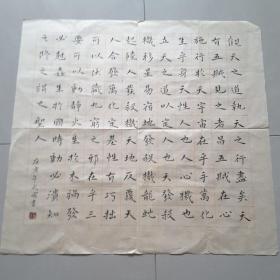 觀天之道執天之行盡矣天
有五賊見之者昌五賊在心
施行於天宇宙在乎手萬化
生乎身天性人也人心機也
立天之道以定人也天發殺
機移星易宿地發殺機龍蛇
起陸人發殺機天地反覆天
人合發萬變定基性有巧拙
可以伏藏九竅之邪在乎三
要可以動靜火生於木禍發
必尅姦生於國時動必潰知
之修之謂之聖人